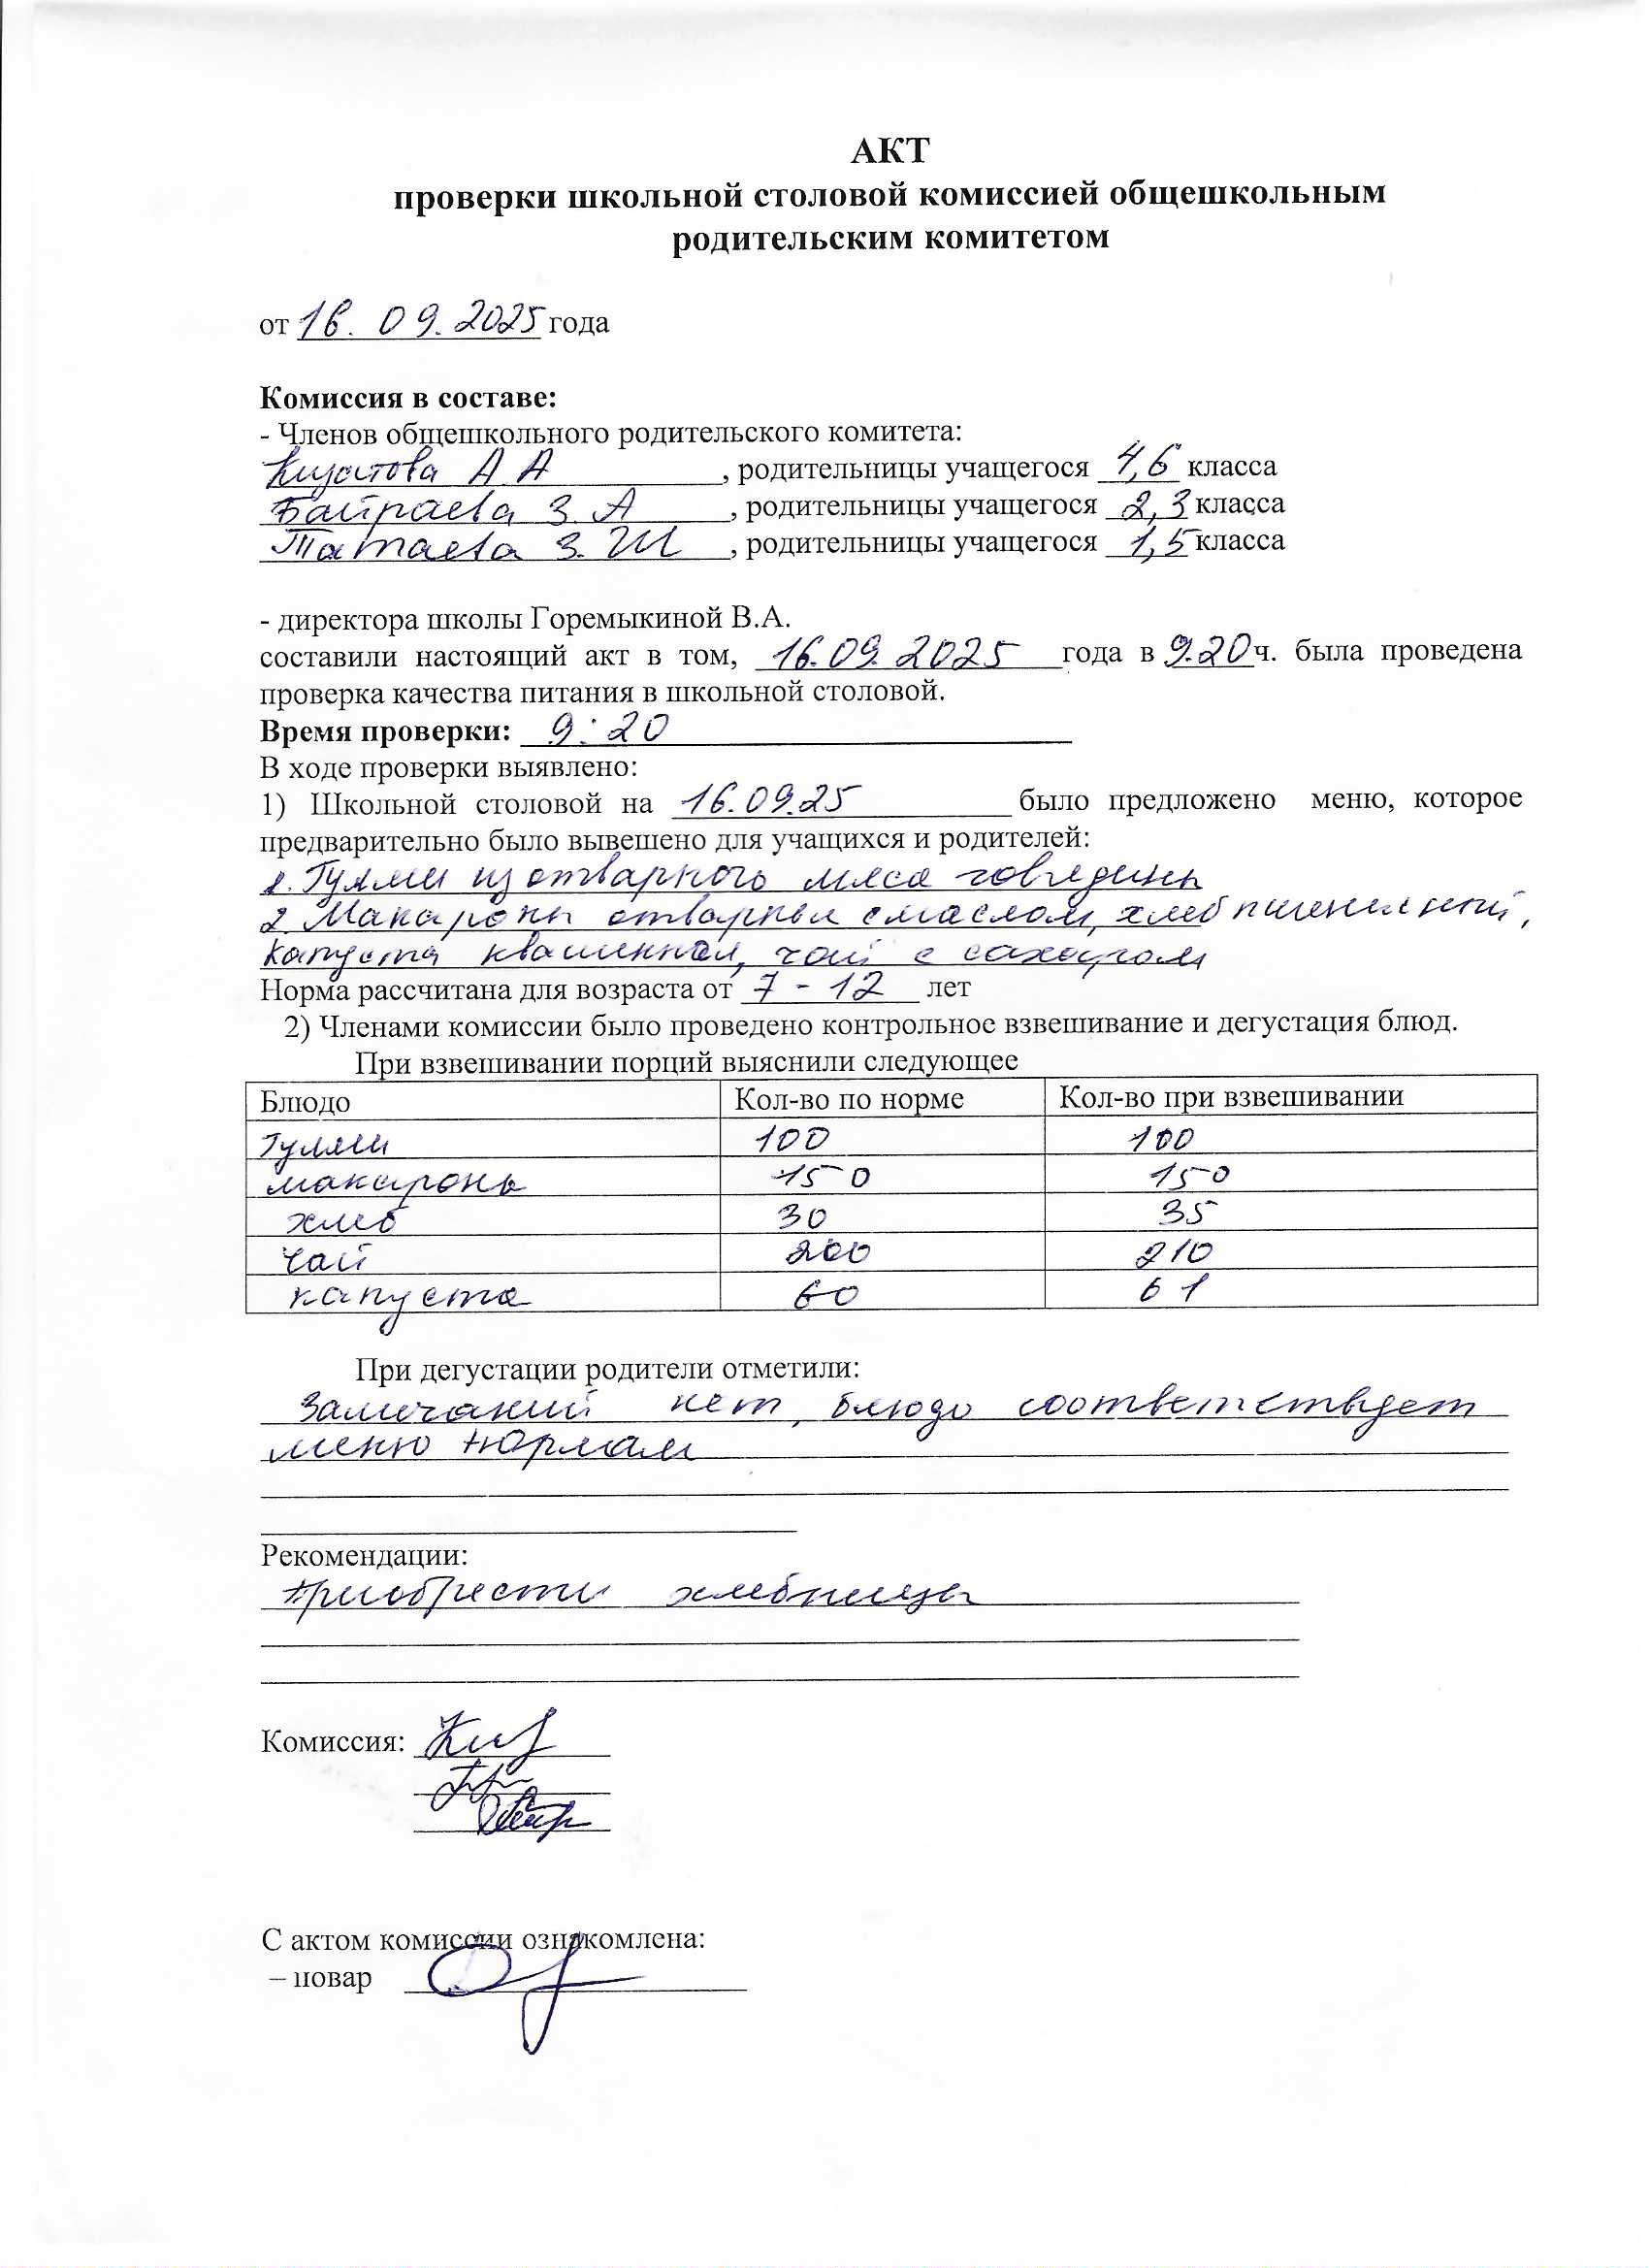 АКТ
проверки школьной столовой комиссией общешкольным
родительским комитетом
от 16. 09. 2025 года
Комиссия в составе:
- Членов общешкольного родительского комитета:
А А, родительницы учащегося 4,6 класса
Байраева З. А, родительницы учащегося 2,3 класса
Татаева З. Ш, родительницы учащегося 1,5 класса
- директора школы Горемыкиной В.А.
составили настоящий акт в том, 16.09. 2025 года в 9.20 ч. была проведена
проверка качества питания в школьной столовой.
Время проверки: 9:20
В ходе проверки выявлено:
1) Школьной столовой на 16.09.25 было предложено меню, которое
предварительно было вывешено для учащихся и родителей:
1. Гуляш из отварного мяса говядины
2. Макароны отварные с маслом, хлеб пшеничный,
капуста квашенная, чай с сахаром
Норма рассчитана для возраста от 7 - 12 лет
2) Членами комиссии было проведено контрольное взвешивание и дегустация блюд.
При взвешивании порций выяснили следующее
Блюдо Кол-во по норме Кол-во при взвешивании
Гуляш 100 100
макароны 150 150
хлеб 30 35
чай 200 210
капуста 60 61
При дегустации родители отметили:
Замечаний нет, блюдо соответствует
меню нормам
Рекомендации:
Приобрести хлебницы
Комиссия:
С актом комиссии ознакомлена:
– повар